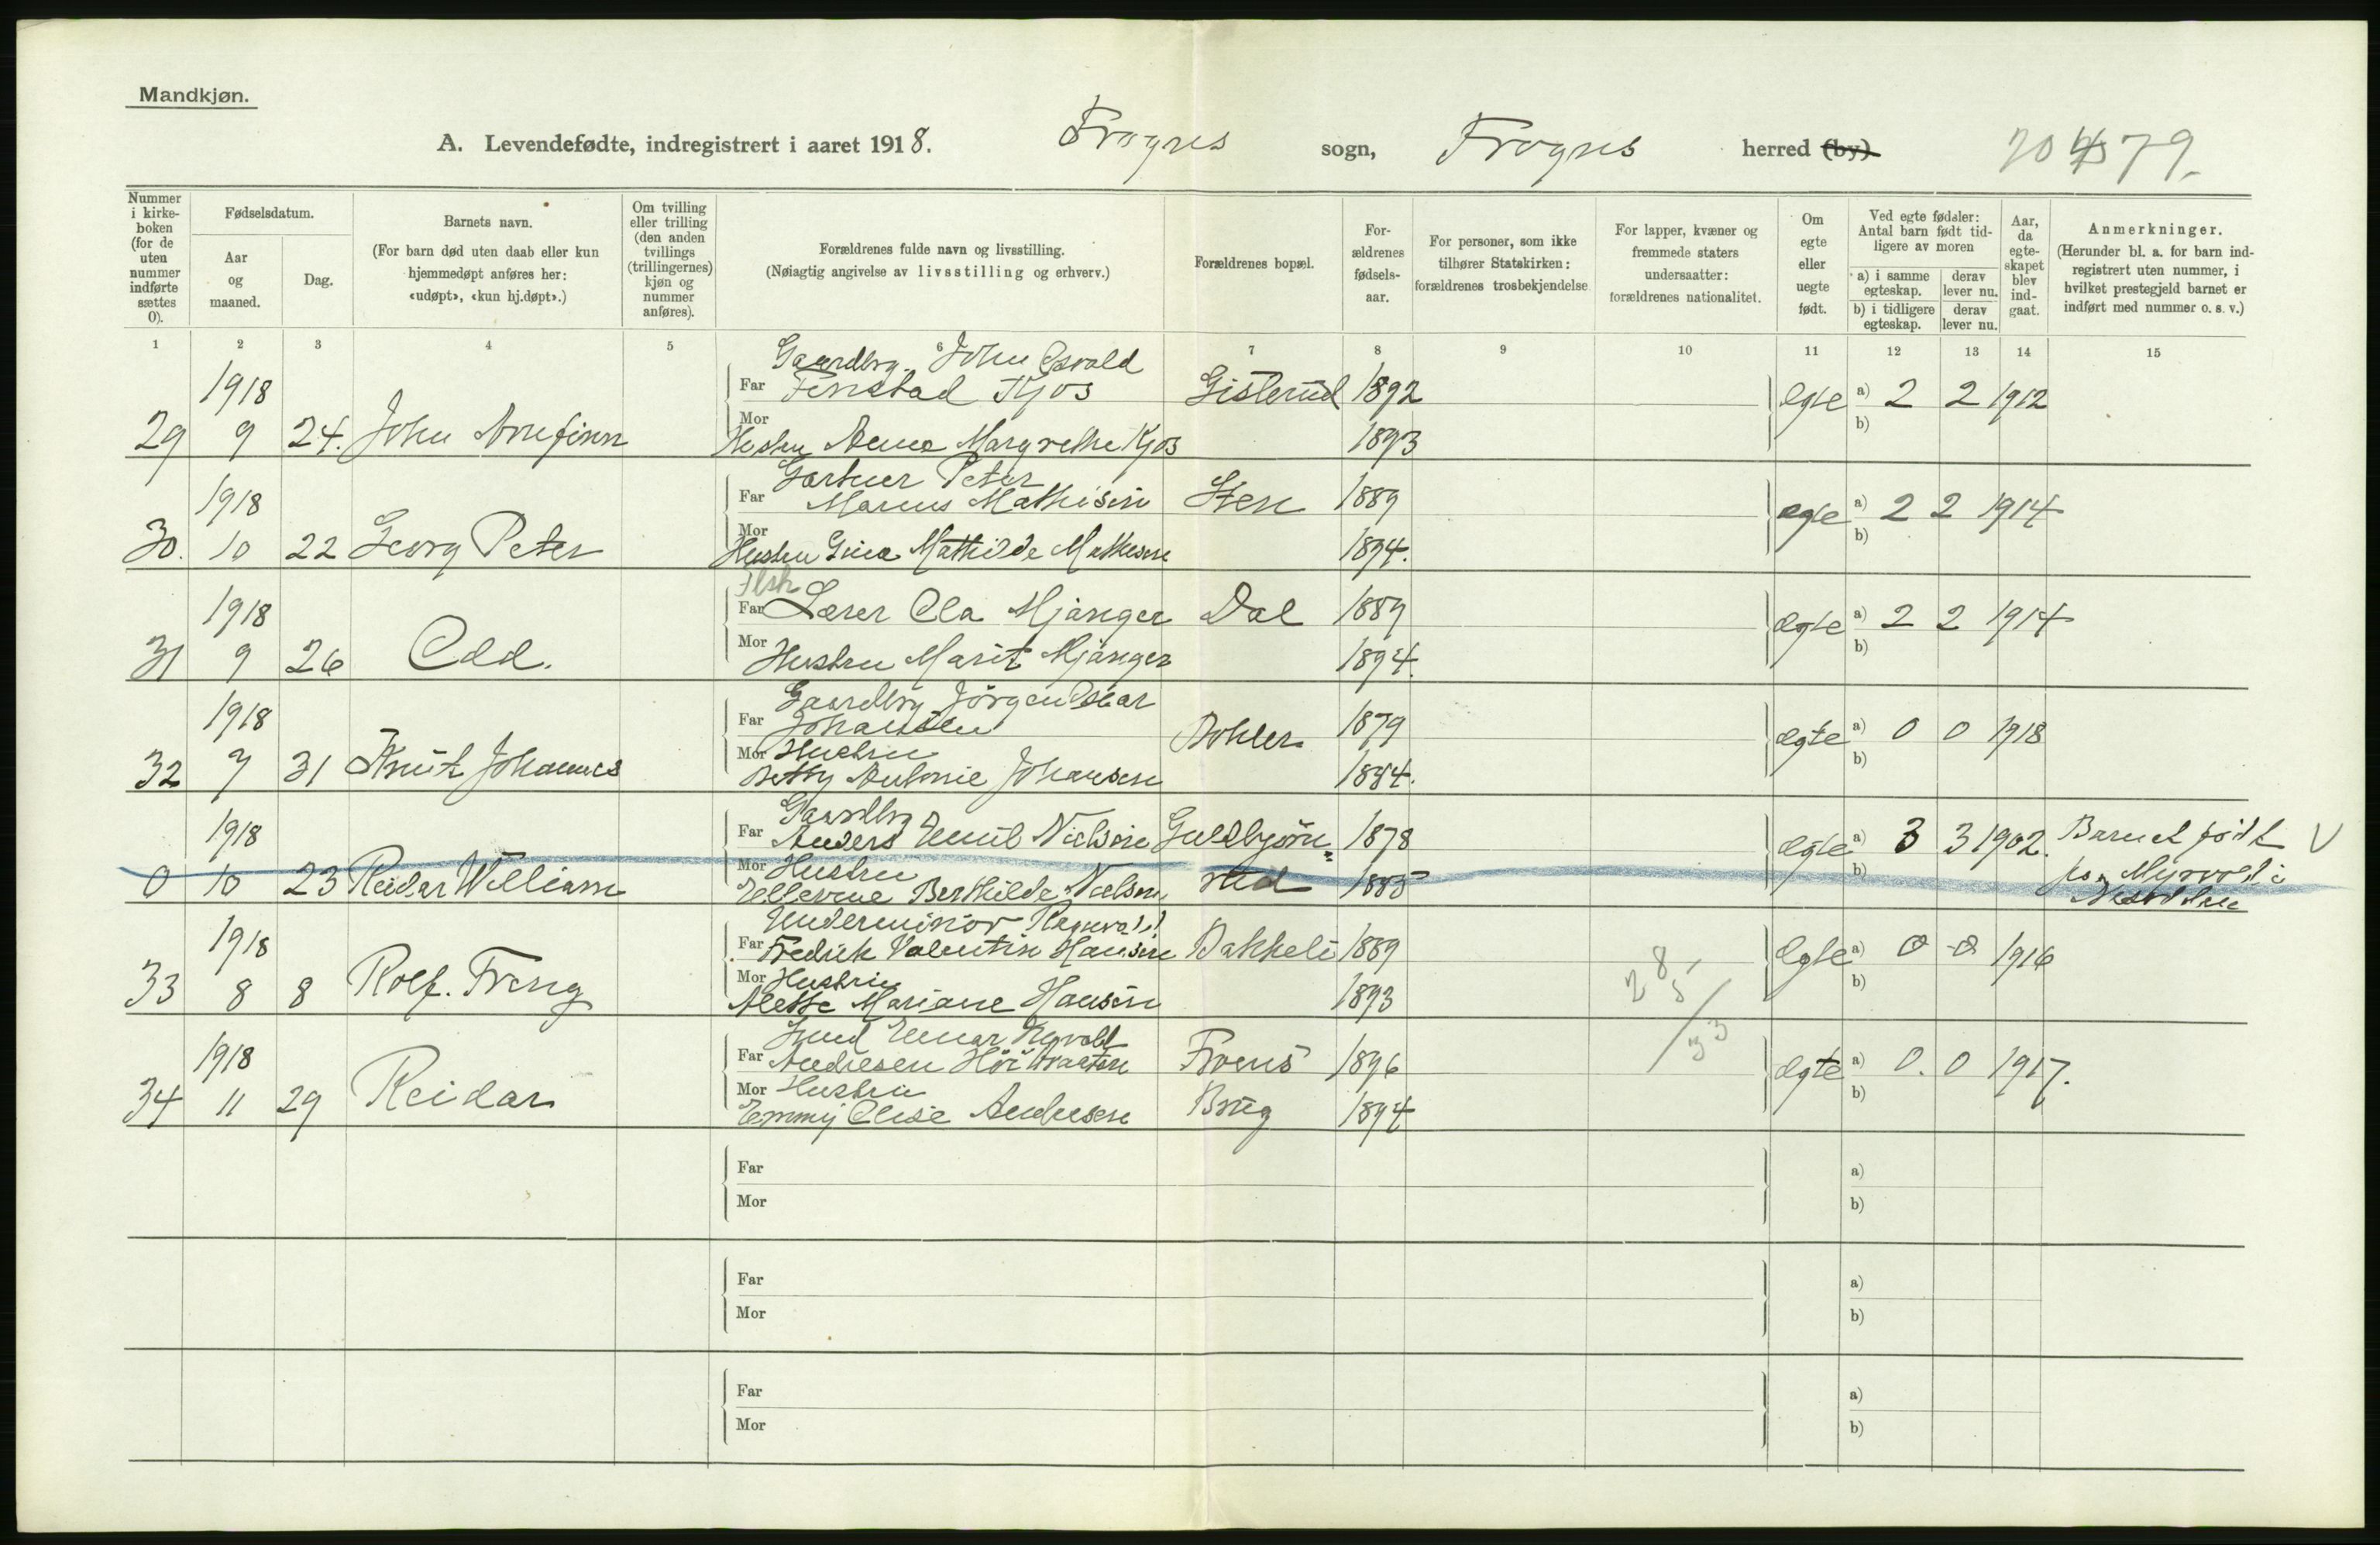 Mandkjøn.
A. Levendefødte, indregistrert i aaret 1918. Frogns sogn, Frogns herred (by) 20 79.
Nummer i kirke-boken (for de uten nummer indførte sættes 0).
Fødselsdatum.
Aar og maaned.
Dag.
Barnets navn.
(For barn død uten daab eller kun hjemmedøpt anføres her: «udøpt», «kun hj.døpt».)
Om tvilling eller trilling (den anden tvillings (trillingernes) kjøn og nummer anføres).
Forældrenes fulde navn og livsstilling.
(Nøiagtig angivelse av livsstilling og erhverv.)
Forældrenes bopæl.
For-ældrenes fødsels-aar.
For personer, som ikke tilhører Statskirken: forældrenes trosbekjendelse
For lapper, kvæner og fremmede staters undersaatter: forældrenes nationalitet.
Om egte eller uegte født.
Ved egte fødsler: Antal barn født tid-ligere av moren
a) i samme egteskap. derav lever nu.
b) i tidligere egteskap. derav lever nu.
Aar, da egte-skapet blev ind-gaat.
Anmerkninger.
(Herunder bl. a. for barn ind-registrert uten nummer, i hvilket prestegjeld barnet er indført med nummer o. s. v.)
1 2 3 4 5 6 7 8 9 10 11 12 13 14 15
Gaardbr. John Osvald
1918 Far Finstad Kjos Gislerud 1892 Egte a) 2 2 1912
29 9 24. John Arnfinn Mor Hustru Anna Margrethe Kjos 1893 b)
Gartner Peter
1918 Far Marius Mathisen Sten 1889 egte a) 2 2 1914
30. 10 22 Georg Peter Mor Hustru Gina Mathilde Mathisen 1894. b)
1918 Far Lærer Ola Mjanger Dal 1889 Egte a) 2 2 1914
31 9 26 Odd. Mor Hustru Marit Mjanger 1894. b)
Gaardbr. Jörgen Oscar
1918 Far Johansen Bohler 1879 Egte a) 0 0 1918
32 7 31 Knut Johannes Mor Hustru
Betsy Antonie Johansen 1884. b)
Gaardbr
1918 Far Anders Emil Nielsen Guldbjörn= 1878 Egte a) 3 3 1902. Barnet född V
0 10 23 Reidar William Mor Hustru
Ellevine Berthilde Nielsen rud 1885 b) paa Myrvold i
Nesodden
Underminör Ragnvald
1918 Far Fredrik Valentin Hansen Bakkeli 1889 Egte a) 0 0 1916
33 8 8 Rolf. Freng Mor Hustru
Alette Mariane Hansen 1893 b)
28 5 / 33
1918 Far Andresen Froens 1896 Egte a) 0. 0 1917.
34 11 29 Reidar Mor Hustru
Emmy Elise Andresen Brug 1894 b)
Far a)
Mor b)
Far a)
Mor b)
Far a)
Mor b)